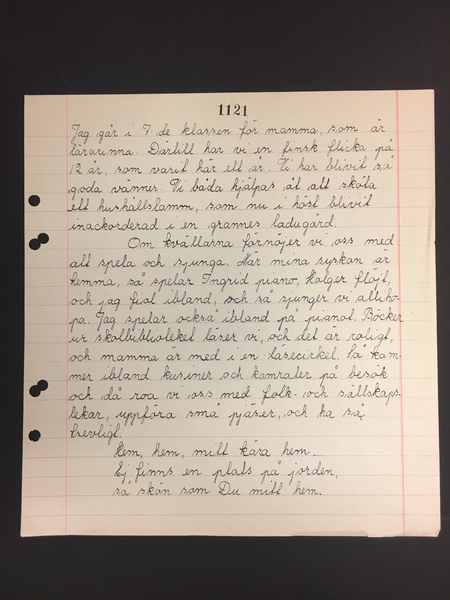 1121
Jag går i 7:de klassen för mamma, som är
lärarinna. Därtill har vi en finsk flicka på
12 år, som varit här ett år. Vi har blivit så
goda vänner. Vi båda hjälpas åt att sköta
ett hushållslamm, som nu i höst blivit
inackorderad i en grannes ladugård.
Om kvällarna förnöjer vi oss med
att spela och sjunga. När mina syskon är
hemma, så spelar Ingrid piano, Holger flöjt,
och jag fiol ibland, och så sjunger vi alliho-
pa. Jag spelar också ibland på pianot. Böcker
ur skolbiblioteket läser vi, och det är roligt,
och mamma är med i en läsecirkel. Så kom-
mer ibland kusiner och kamrater på besök
och då roa vi oss med folk- och sällskaps-
lekar, uppföra små pjäser, och ha så
trevligt.
Hem, hem, mitt kära hem.
Ej finns en plats på jorden,
så skön som Du mitt hem.